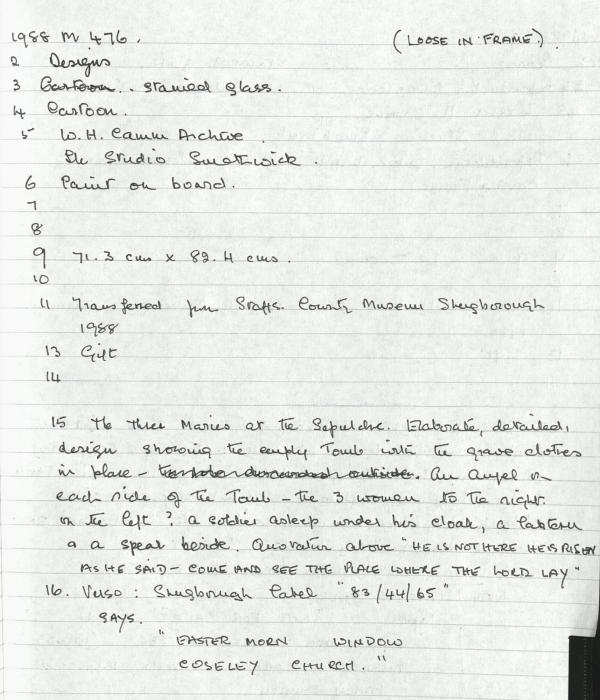 1988 M 476. (LOOSE IN FRAME).
2 Designs
3 Cartoon.. stanied glass.
4 Cartoon.
5 W.H. Camm Archive
The Studio Smethwick.
6 Paint on board.
7
8
9 71.3 cms x 82.4 cms.
10
11 Transferred from Staffs. County Museum Shugborough
1988
13 Gift
14
15 The three Maries at the Sepulchre. Elaborate, detailed,
design showing the empty Tomb with the grave clothes
in place - An Angel on
each side of the Tomb - the 3 women to the right.
on the left ? a soldier asleep under his cloak, a lantern
a a spear beside. Quotation above "HE IS NOT HERE HE IS RISEN
AS HE SAID - COME AND SEE THE PLACE WHERE THE LORD LAY"
16. Verso : Shugborough label "83/44/65"
SAYS.
"EASTER MORN WINDOW
COSELEY CHURCH."